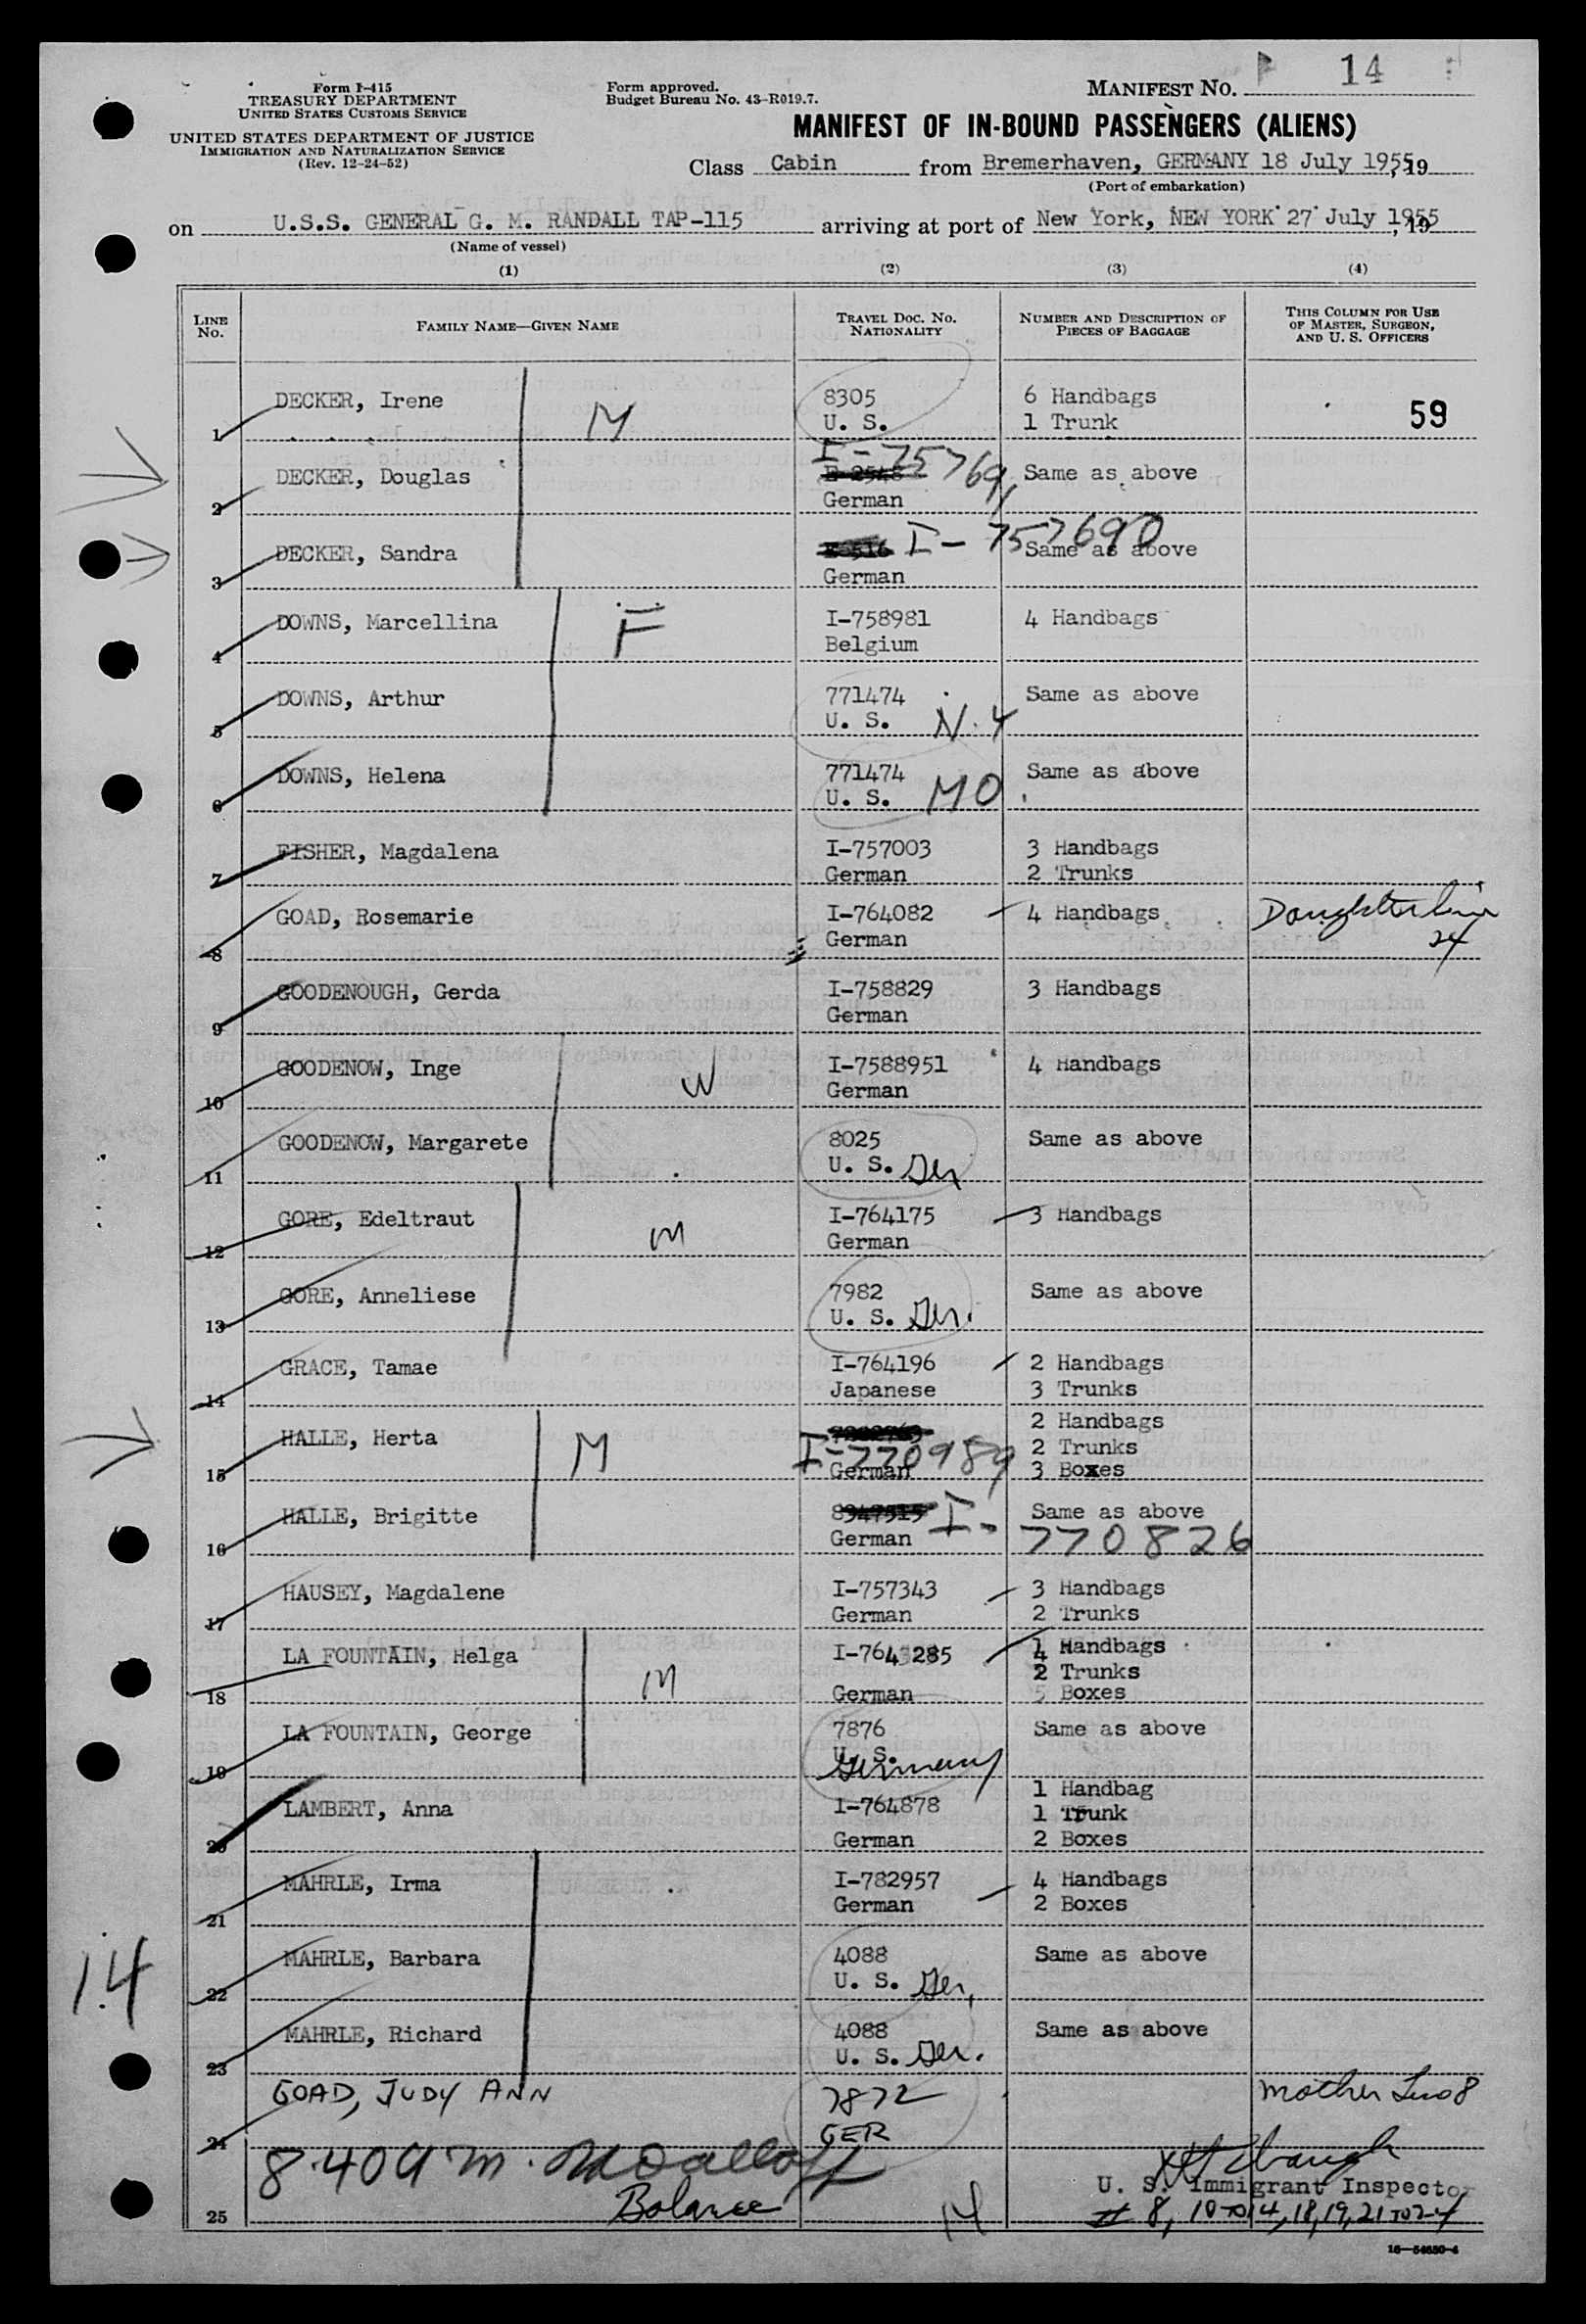 Form I-415
TREASURY DEPARTMENT
UNITED STATES CUSTOMS SERVICE
UNITED STATES DEPARTMENT OF JUSTICE
IMMIGRATION AND NATURALIZATION SERVICE
(Rev. 12-24-52)
Form approved.
Budget Bureau No. 43-R019.7.
MANIFEST NO. 14
MANIFEST OF IN-BOUND PASSENGERS (ALIENS)
Class Cabin from Bremerhaven, GERMANY 18 July 1955, 19
(Port of embarkation)
on U.S.S. GENERAL G. M. RANDALL TAP-115 arriving at port of New York, NEW YORK 27 July 1955, 19
(Name of vessel)
(1) (2) (3) (4)
LINE NO. FAMILY NAME—GIVEN NAME TRAVEL DOC. NO. NATIONALITY NUMBER AND DESCRIPTION OF PIECES OF BAGGAGE THIS COLUMN FOR USE OF MASTER, SURGEON, AND U. S. OFFICERS
1 DECKER, Irene M 8305 6 Handbags 59
U. S. 1 Trunk
2 DECKER, Douglas I-75769 Same as above
German
3 DECKER, Sandra I-757690 Same as above
German
4 DOWNS, Marcellina F I-758981 4 Handbags
Belgium
5 DOWNS, Arthur 771474 Same as above
U. S. N.Y
6 DOWNS, Helena 771474 Same as above
U. S. MO
7 FISHER, Magdalena I-757003 3 Handbags
German 2 Trunks
8 GOAD, Rosemarie I-764082 4 Handbags Daughter line
German 24
9 GOODENOUGH, Gerda I-758829 3 Handbags
German
10 GOODENOW, Inge W I-7588951 4 Handbags
German
11 GOODENOW, Margarete 8025 Same as above
U. S. Ger
12 GORE, Edeltraut M I-764175 3 Handbags
German
13 GORE, Anneliese 7982 Same as above
U. S. Ger.
14 GRACE, Tamae I-764196 2 Handbags
Japanese 3 Trunks
15 HALLE, Herta M I-770989 2 Handbags
2 Trunks
German 3 Boxes
16 HALLE, Brigitte 8347515 I-770826 Same as above
German
17 HAUSEY, Magdalene I-757343 3 Handbags
German 2 Trunks
18 LA FOUNTAIN, Helga M I-764285 4 Handbags
2 Trunks
German 5 Boxes
19 LA FOUNTAIN, George 7876 Same as above
U. S.
Germany
20 LAMBERT, Anna I-764878 1 Handbag
1 Trunk
German 2 Boxes
21 MAHRLE, Irma I-782957 4 Handbags
German 2 Boxes
14
22 MAHRLE, Barbara 4088 Same as above
U. S. Ger.
23 MAHRLE, Richard 4088 Same as above
U. S. Ger.
24 GOAD, JUDY ANN 7872 mother Line 8
GER
8.409
Balance
U. S. Immigrant Inspector
25 14 # 8, 10 TO 14, 18, 19, 21 TO 24
16—54650-4